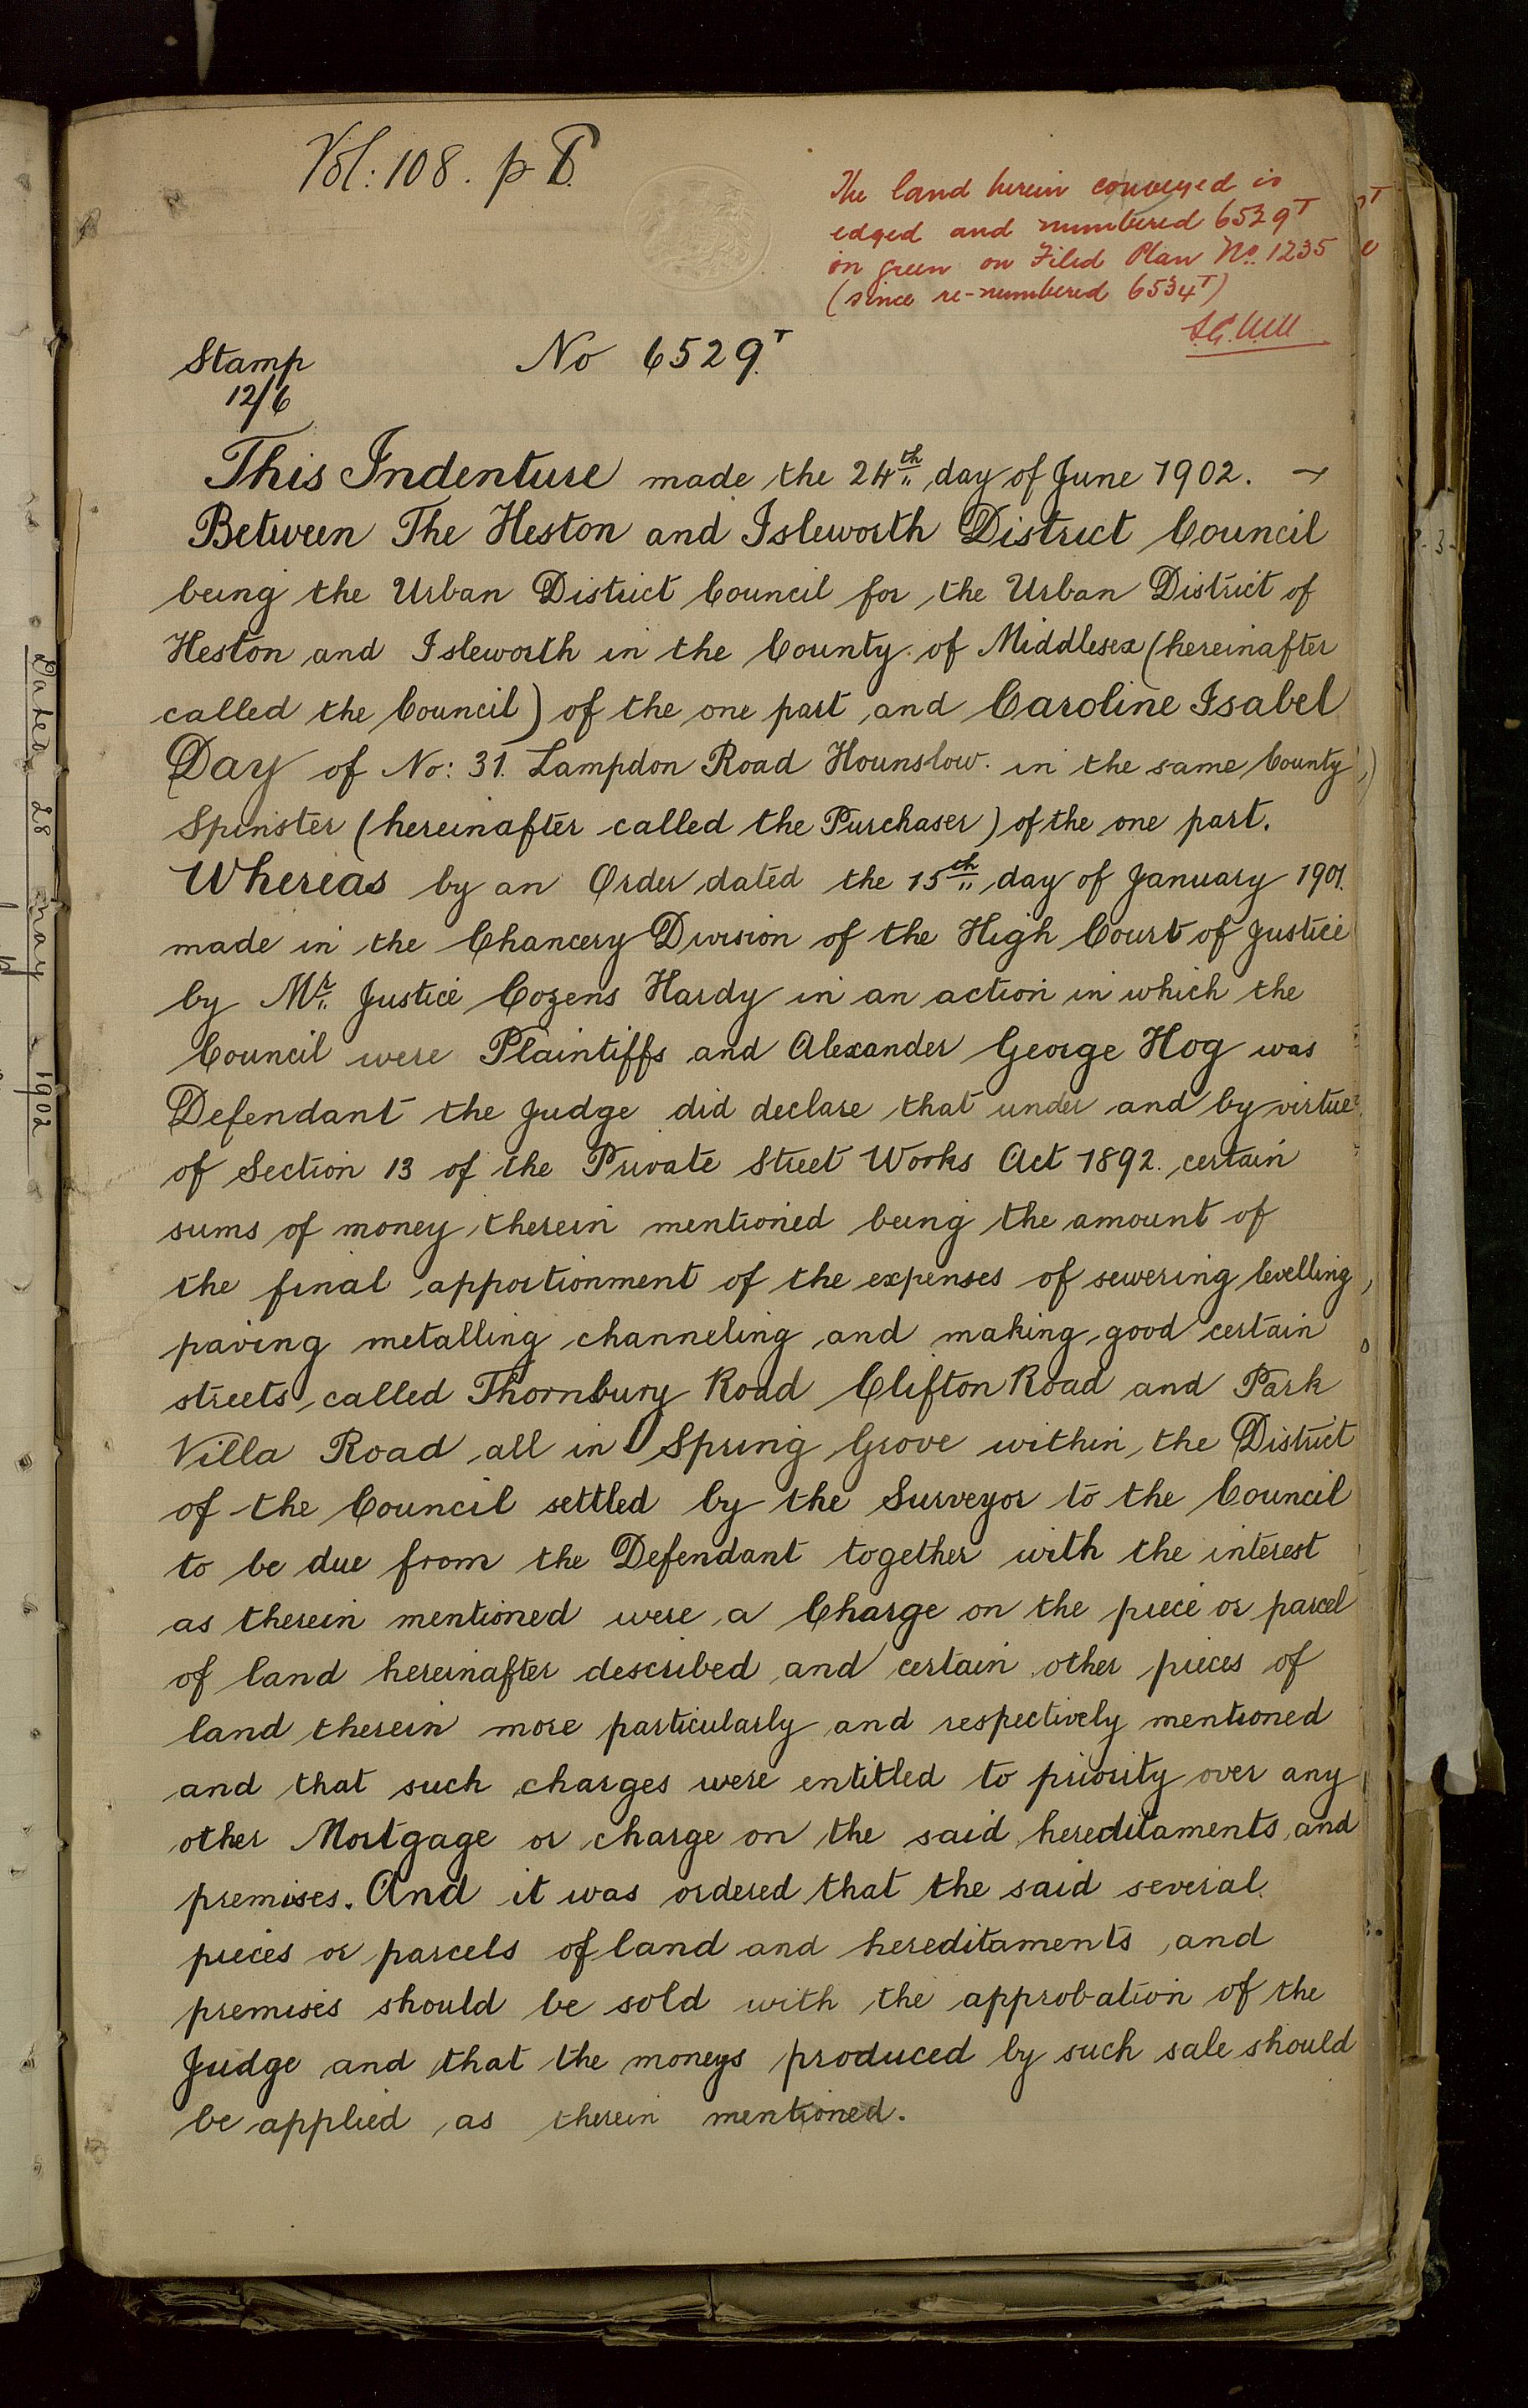 Vol: 108. p
The land herein conveyed is
edged and numbered 6529T
in green on Filed Plan No. 1235
(since re-numbered 6534T)
Stamp
12/6
No 6529T
This Indenture made the 24th day of June 1902.
Between The Heston and Isleworth District Council
being the Urban District Council for the Urban District of
Heston and Isleworth in the County of Middlesex (hereinafter
called the Council) of the one part and Caroline Isabel
Day of No: 31. Lampdon Road Hounslow. in the same County
Spinster (hereinafter called the Purchaser) of the one part.
Whereas by an Order dated the 15th day of January 1901.
made in the Chancery Division of the High Court of Justice
by Mr. Justice Cozens Hardy in an action in which the
Council were Plaintiffs and Alexander George Hog was
Defendant the Judge did declare that under and by virtue
of Section 13 of the Private Street Works Act 1892. certain
sums of money therein mentioned being the amount of
the final apportionment of the expenses of sewering levelling
paving metalling channeling and making good certain
streets called Thornbury Road Clifton Road and Park
Villa Road all in Spring Grove within the District
of the Council settled by the Surveyor to the Council
to be due from the Defendant together with the interest
as therein mentioned were a Charge on the piece or parcel
of land hereinafter described and certain other pieces of
land therein more particularly and respectively mentioned
and that such charges were entitled to priority over any
other Mortgage or charge on the said hereditaments and
premises. And it was ordered that the said several
pieces or parcels of land and hereditaments and
premises should be sold with the approbation of the
Judge and that the moneys produced by such sale should
be applied as therein mentioned.
Dated 28 May 1902